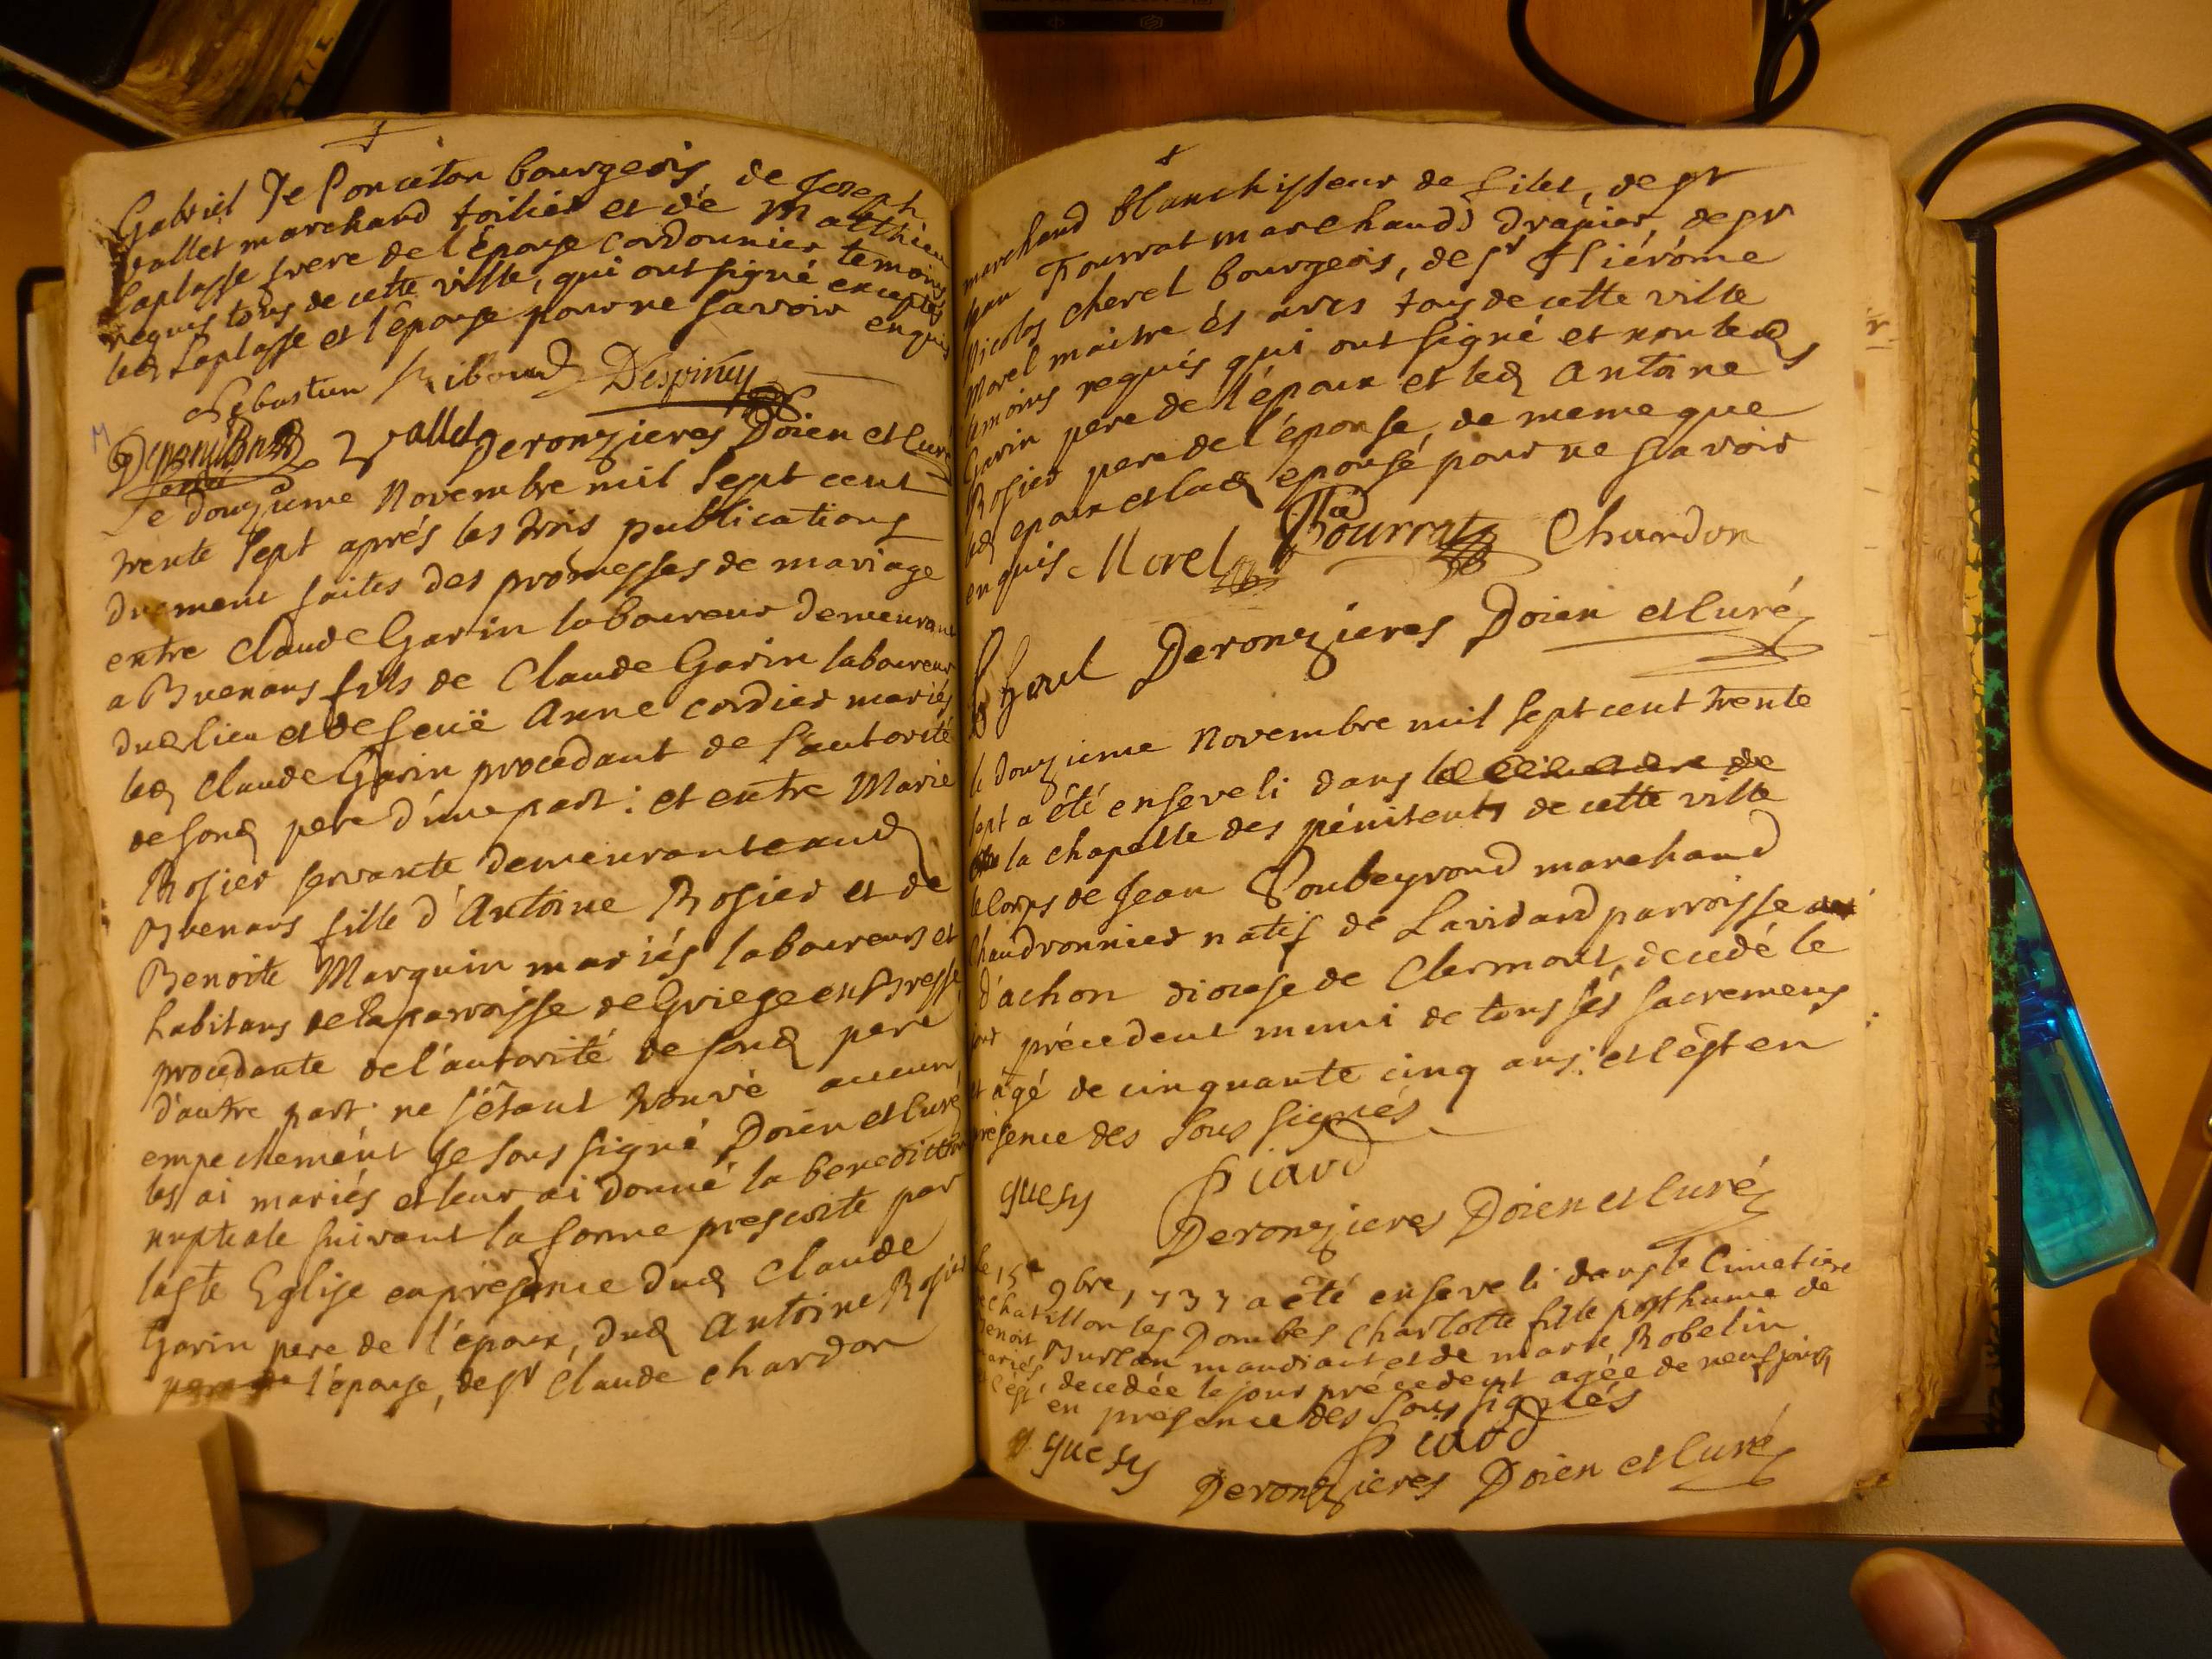 Gabriel De Ponceton bourgeois de Joseph
vallet marchand toilier et de Matthieu
Laplasse frere de l'Epouse cordonnier temoins
requis tous de cette ville, qui ont signé exceptés
led Laplasse et l'épouse pour ne savoir enquis
Sébastien Riboud Despiney
vallet Deronzieres Doien et Curé
Le douzieme Novembre mil sept cent
trente sept aprés les trois publications
duement faites des promesses de mariage
entre Claude Garin laboureur demeurant
a Buenans fils de Claude Garin laboureur
dud lieu et de feuë Anne cordier mariés
led Claude Garin procedant de l'autorité
de sond pere d'une part: et entre Marie
Rosier servante demeurante aud
Buenans fille d'Antoine Rosier et de
Benoite Marguin mariés laboureurs et
habitans de la parroisse de Griege en Bresse
procedante de l'autorité de sond pere
d'autre part: ne s'étant trouvé aucun
empechement je sous signé Doien et Curé
les ai mariés et leur ai donné la benediction
nuptiale suivant la forme prescrite par
laste Eglise en présence dud Claude
Garin pere de l'époux, dud Antoine Rosier
pere de l'épouse, de sr Claude chardon
8
marchand blanchisseur de filet, de sr
jean Fourrat marchand drapier, de sr
Nicolas cheret bourgeois, de sr Hiérôme
Morel maitre és arts tous de cette ville
temoins requis qui ont signé et non led
Garin pere de l'époux et led Antoine
Rosier pere de l'épouse, de meme que
led epoux et lad epouse pour ne sçavoir
enquis Morel Fourrat Chardon
Deronzieres Doien et Curé
le douzieme Novembre mil sept cent trente
sept a été enseveli dans
la chapelle des pénitents de cette ville
le Corps de Jean Soubeyrond marchand
chaudronnier natif de Lavidard parroisse
d'achon diocese de Clermont, decedé le
jour précedent muni de tous ses sacremens
et agé de cinquante cinq ans: et c'est en
présence des sous signés
guesy Picard
Deronzieres Doien et Curé
le 15e 9bre, 1737 a été enseveli dans le Cimetiere
de chatillon les Dombes Charlotte fille posthume de
Benoit Burlan mandiant et de marie Robelin
mariés, decedée le jour précedent agée de neuf jours
et c'est en presence des sous signés
guesy Picard
Deronzieres Doien et Curé